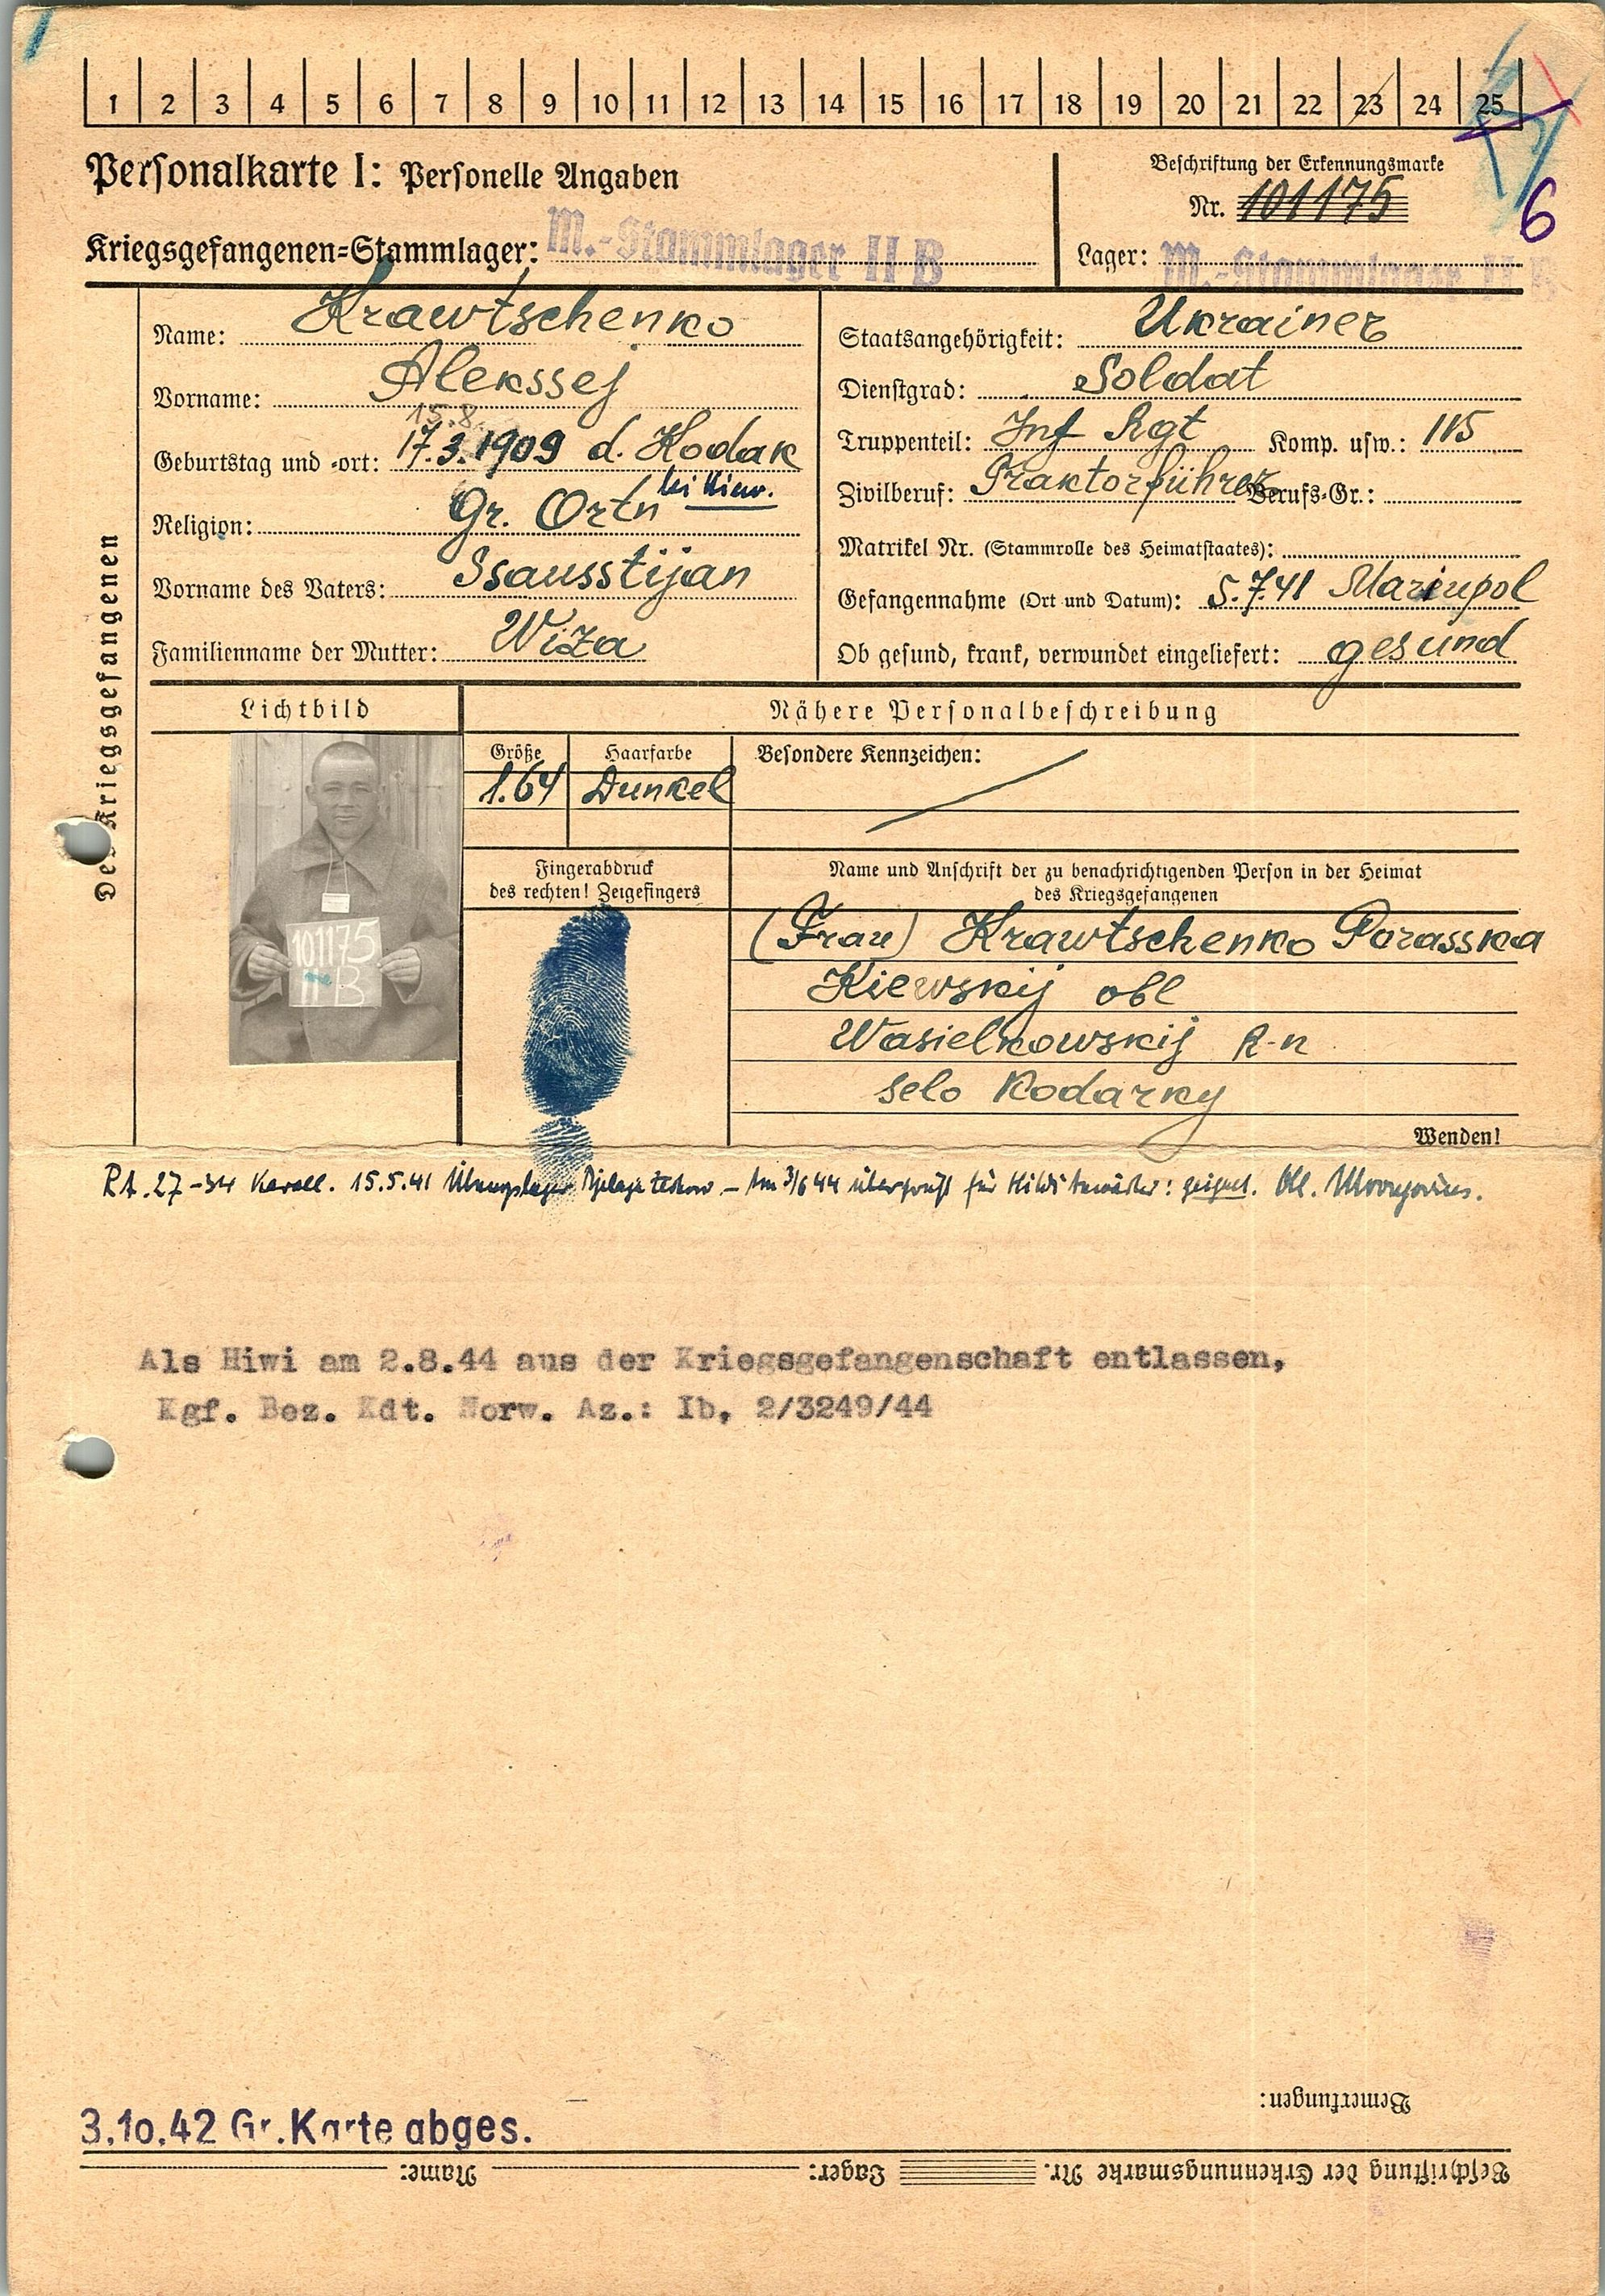 1 2 3 4 5 6 7 8 9 10 11 12 13 14 15 16 17 18 19 20 21 22 23 24 25
Personalkarte I: Personelle Angaben
Beschriftung der Erkennungsmarke
Nr. 101175
6
Kriegsgefangenen=Stammlager: M.-Stammlager II B
Lager: M.-Stammlager II B
Des Kriegsgefangenen
Name: Krawtschenko
Vorname: Alekssej
15.8.
Geburtstag und -ort: 17.3.1909 d. Kodak
bei Kiew.
Religion: Gr. Ortn
Vorname des Vaters: Ssausstijan
Familienname der Mutter: Wiza
Staatsangehörigkeit: Ukrainer
Dienstgrad: Soldat
Truppenteil: Inf Rgt Komp. usw.: 115
Zivilberuf: Traktorführer Berufs-Gr.:
Matrikel Nr. (Stammrolle des Heimatstaates):
Gefangennahme (Ort und Datum): 5.7.41 Mariupol
Ob gesund, krank, verwundet eingeliefert: gesund
Lichtbild
Nähere Personalbeschreibung
Größe
1.64
Haarfarbe
Dunkel
Besondere Kennzeichen:
101175
II B
Fingerabdruck
des rechten! Zeigefingers
Name und Anschrift der zu benachrichtigenden Person in der Heimat
des Kriegsgefangenen
(Frau) Krawtschenko Parasska
Kiewskij obl
Wasielkowskij R-n
selo Kodarky
Wenden!
27-34 15.5.41 Übungslager – Am 3/6 44 überprüft für geeignet.
Als Hiwi am 2.8.44 aus der Kriegsgefangenschaft entlassen,
Kgf. Bez. Kdt. Norw. Az.: Ib, 2/3249/44
Bemerkungen:
3.10.42 Gr. Karte abges.
Beschriftung der Erkennungsmarke Nr. Lager: Name: